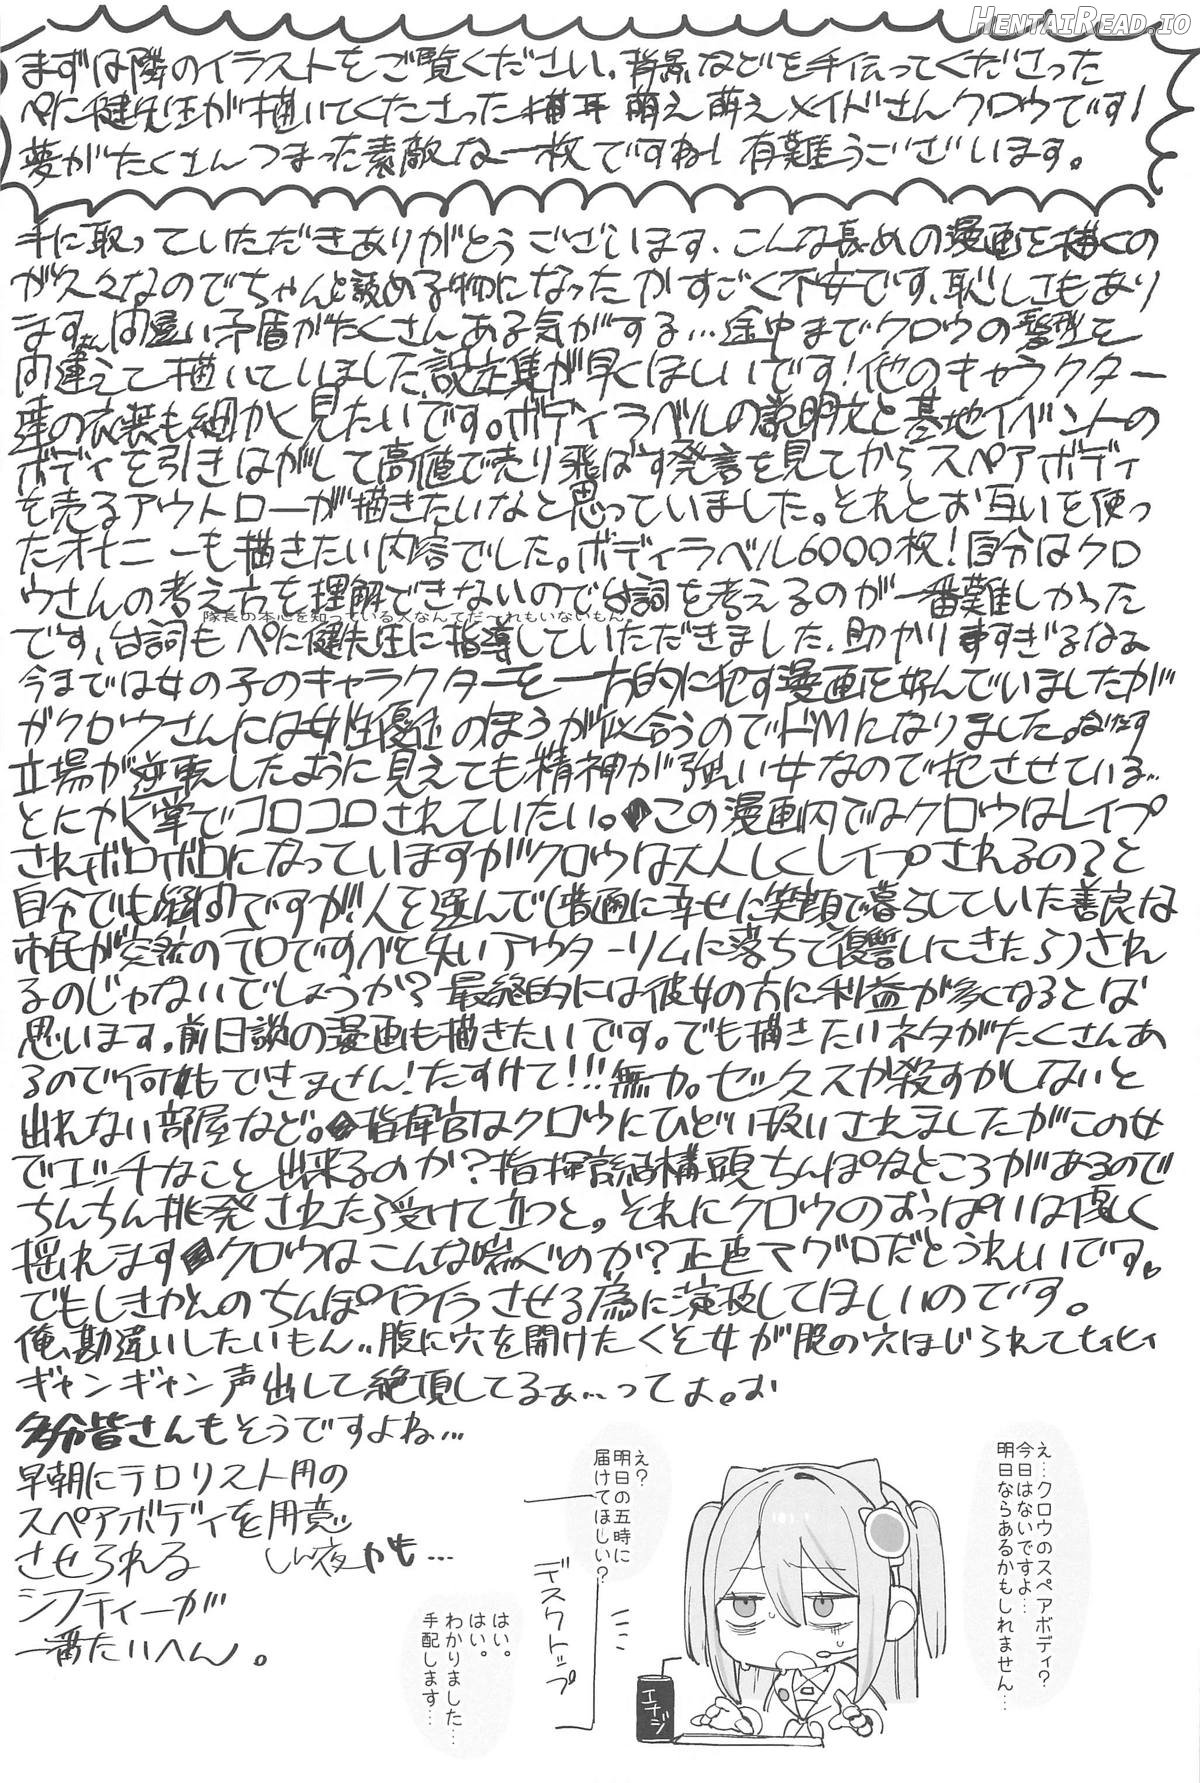 HentaiRead.io
まずは隣のイラストをご覧ください。背景などを手伝ってくださった
ぺに健先生が描いてくださった猫耳萌え萌えメイドさんクロウです!
夢がたくさんつまった素敵な一枚ですね!有難うございます。
手に取っていただきありがとうございます、こんな長めの漫画を描くの
が久々なのでちゃんと読める物になったかすごく不安です、恥しさもあり
ます 間違い矛盾がたくさんある気がする…途中までクロウの髪型を
間違えて描いていました設定集が早くほしいです!他のキャラクター
達の衣装も細かく見たいです。ボディラベルの説明文と基地イベントの
ボディを引きはがして高値で売り飛ばす発言を見てからスペアボディ
を売るアウトローが描きたいなと思っていました。それとお互いを使っ
たオナニーも描きたい内容でした。ボディラベル6000枚!自分はクロ
ウさんの考え方を理解できないので台詞を考えるのが一番難しかった
隊長の本心を知っている人なんてだーれもいないもん。
です、台詞もぺに健先生に指導していただきました、助かりますすぎるなぁ
今までは女の子のキャラクターを一方的に犯す漫画を好んでいましたがが
がクロウさんには女性優位のほうが似合うのでドMになりました。
立場が逆転したように見えても精神が強い女なので犯させている…
とにかく掌でコロコロされていたい。この漫画内ではクロウはレイプ
されボロボロになっていますがクロウは大人しくレイプされるの?と
自分でも疑問ですが、人を選んで(普通に幸せに笑顔で暮らしていた善良な
市民が突然のテロですべて失いアウターリムに落ちて復讐しにきたら)され
るのじゃないでしょうか?最終的には彼女の方に利益が多くなるとは
思います。前日談の漫画も描きたいです。でも描きたいネタがたくさんあ
るので何もできません!たすけて!!!無力。セックスか殺すかしないと
出れない部屋など。指揮官はクロウにひどい扱いされましたがこの女
でエッチなこと出来るのか?指揮官結構頭ちんぽなところがあるので
ちんちん挑発されたら受けて立つと。それにクロウのおっぱいは優しく
揺れます クロウはこんな喘ぐのか?正直マグロだとうれしいです。
でもしきかんのちんぽイライラさせる為に演技してほしいのです。
俺、勘違いしたいもん..腹に穴を開けたくそ女が股の穴ほじられてヒィヒィ
ギャンギャン声出して絶頂してるぁ…ってよ。お
多分皆さんもそうですよね…
早朝にテロリスト用の
スペアボディを用意
させられる しん夜かも…
シフティーが
一番たいへん。
え…クロウのスペアボディ?
今日はないですよ…
明日ならあるかもしれません…
え?
明日の五時に
届けてほしい?
はい。
はい。
わかりました…
手配します…
デスクトップ
エナジ